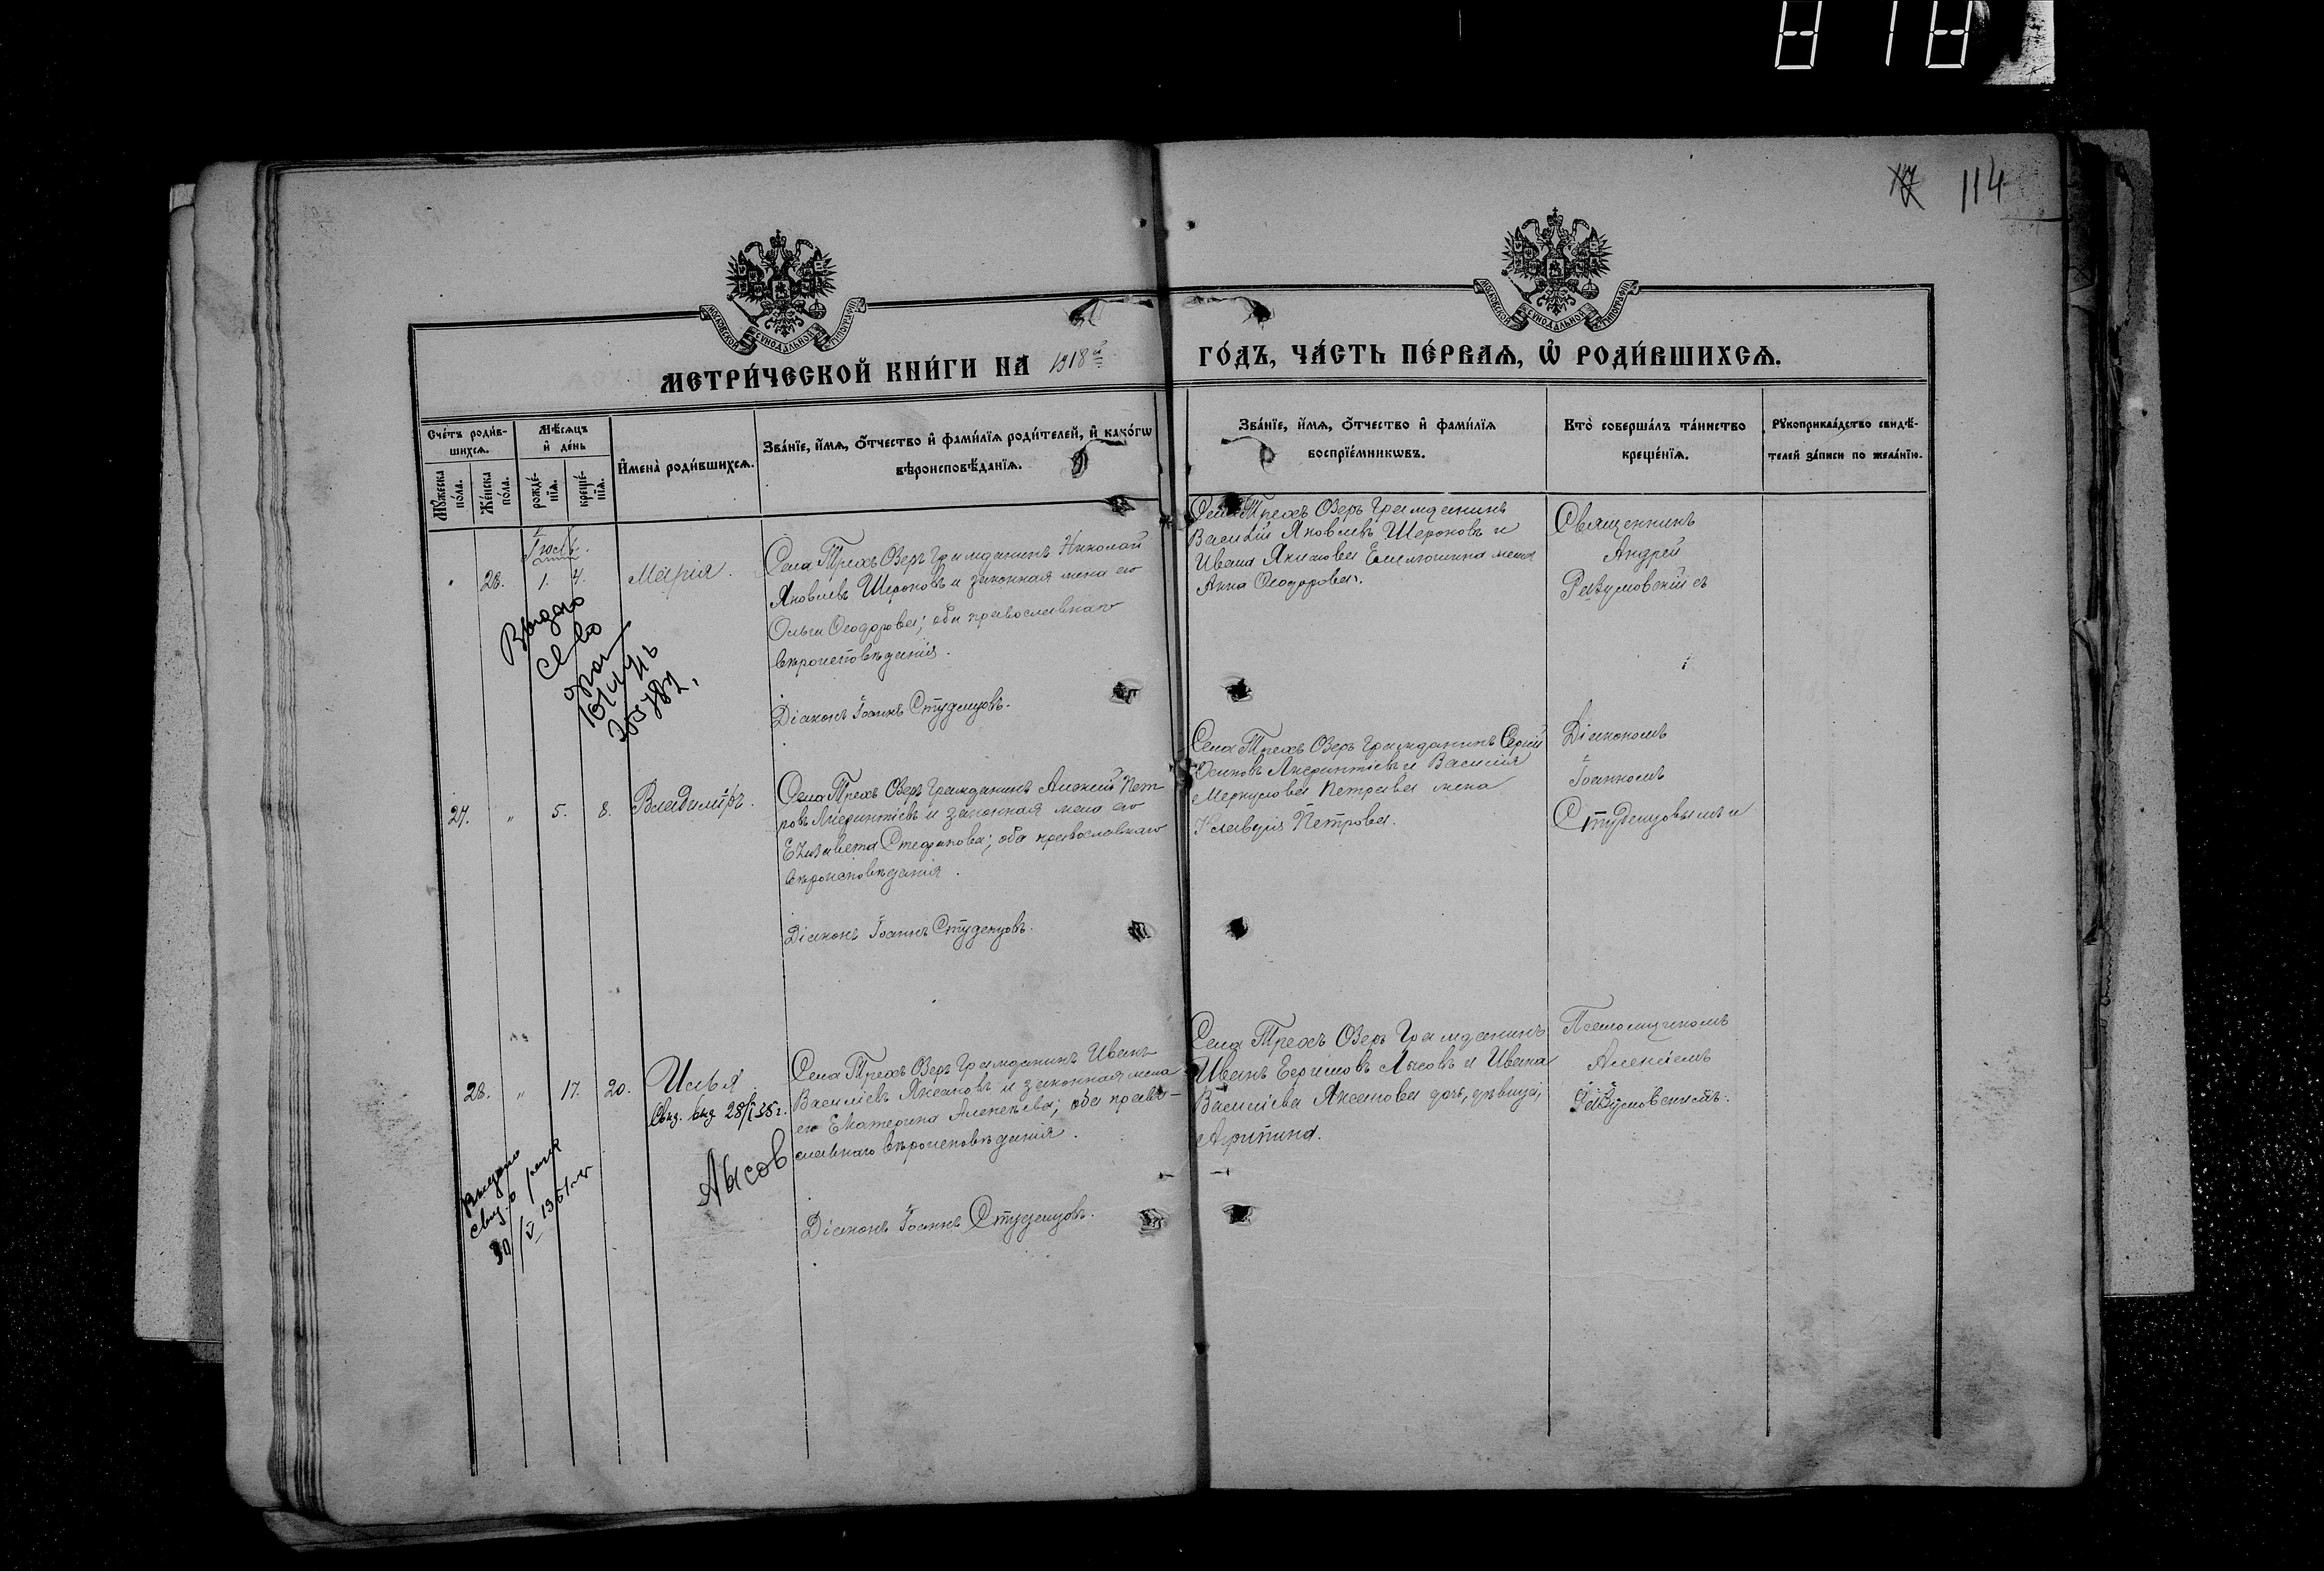 114
МОСКОВСКОЙ СУНОДАЛЬНОЙ ТИПОГРАФІИ
МОСКОВСКОЙ СУНОДАЛЬНОЙ ТИПОГРАФІИ
МЕТРИ́ЧЕСКОЙ КНИ́ГИ НА 1918й
ГО́ДЪ, ЧА́СТЬ ПЕ́РВАѦ, Ѡ҆ РОДИ́ВШИХСѦ.
Сче́тъ роди́в-
шихсѧ.
Мѣ́сѧцъ
и҆ де́нь
Мꙋ́жеска
по́ла.
Же́нска
по́ла.
рожде́-
нїѧ.
креще́-
нїѧ.
И҆мена̀ роди́вшихсѧ.
Зва́нїе, и҆́мѧ, ѻ҆́тчество и҆ фами́лїѧ роди́телей, и҆ како́гѡ
вѣроисповѣ́данїѧ.
Зва́нїе, и҆́мѧ, ѻ҆́тчество и҆ фами́лїѧ
воспрїе́мникѡвъ.
Кто̀ соверша́лъ та́инство
креще́нїѧ.
Рꙋкоприкла́дство свидѣ́-
телей за́писи по жела́нїю.
28.
1.
4.
Марія.
Села Трехъ Озеръ гражданинъ Николай
Яковлевъ Широковъ и законная жена его
Ольга Ѳеодорова; оба православнаго
вѣроисповѣданія.
Діаконъ Іоаннъ Студенцовъ.
Села Трехъ Озеръ гражданинъ
Василій Яковлевъ Широковъ и
Ивана Якимова Емелюшина жена
Анна Ѳеодорова.
Священникъ
Андрей
Разумовскій съ
Выдано
27.
"
5.
8.
Владиміръ.
Села Трехъ Озеръ гражданинъ Алексій Пет
ровъ Лаврентіевъ и законная жена его
Елизавета Стефанова; оба православнаго
вѣроисповѣданія.
Діаконъ Іоаннъ Студенцовъ.
Села Трехъ Озеръ гражданинъ Сергій
Осиповъ Лаврентіевъ и Василія
Меркулова Петрова жена
Клавдія Петрова.
Діакономъ
Іоанномъ
Студенцовымъ и
28.
"
17.
20.
Илья
Свид. выд 28/I 35 г.
Лысов
Села Трехъ Озеръ гражданинъ Иванъ
Василіевъ Аксановъ и законная жена
его Екатерина Алексѣева; оба право-
славнаго вѣроисповѣданія.
Діаконъ Іоаннъ Студенцовъ.
Села Трехъ Озеръ гражданинъ
Иванъ Лысовъ и Ивана
Василіева дочь, дѣвица,
Агрипина.
Псаломщикомъ
Алексіемъ
Разумовскимъ.
Выдано